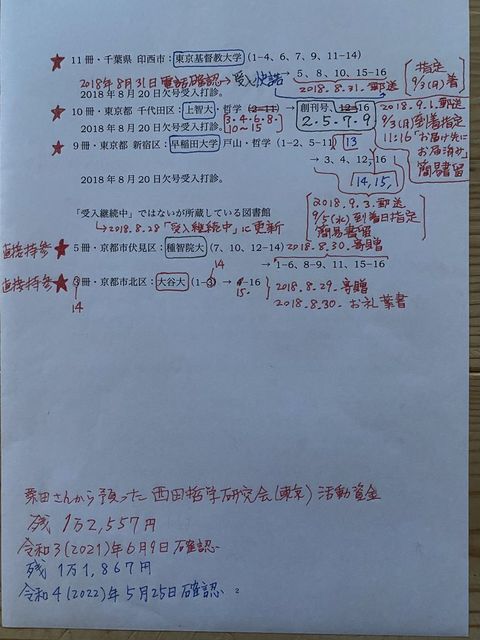 ★ 11冊・千葉県 印西市：東京基督教大学 (1-4、6、7、9、11-14)
2018年8月31日電話確認→受入快諾 → 5、8、10、15-16
2018.8.31.郵送
指定
9/3(月)着
2018年8月20日欠号受入打診。
★ 10冊・東京都 千代田区：上智大・哲学 (2-11) → 創刊号、12-16
3・4・6・8・
10〜15
2・5・7・9
2018年8月20日欠号受入打診。
2018.9.1.郵送
9/3(月)到着指定
11:16「お届け先に
お届済み」
簡易書留
★ 9冊・東京都 新宿区：早稲田大学 戸山・哲学 (1-2、5-11) 13
→ 3、4、12、16
14,15,
2018年8月20日欠号受入打診。
2018.9.3.郵送
9/5(水)到着日指定
簡易書留
「受入継続中」ではないが所蔵している図書館
→2018.8.28「受入継続中」に更新
直接持参 ★ 5冊・京都市伏見区：種智院大 (7、10、12-14) 2018.8.30.寄贈
→ 1-6、8-9、11、15-16
直接持参 ★ 3冊・京都市北区：大谷大 (1-3) → 4-16
14
14
15.
2018.8.29.寄贈
2018.8.30.お礼葉書
栗田さんから預った西田哲学研究会(東京)活動資金
残 1万2,557円
令和3(2021)年6月9日確認
残 1万1,867円
令和4(2022)年5月25日確認
2